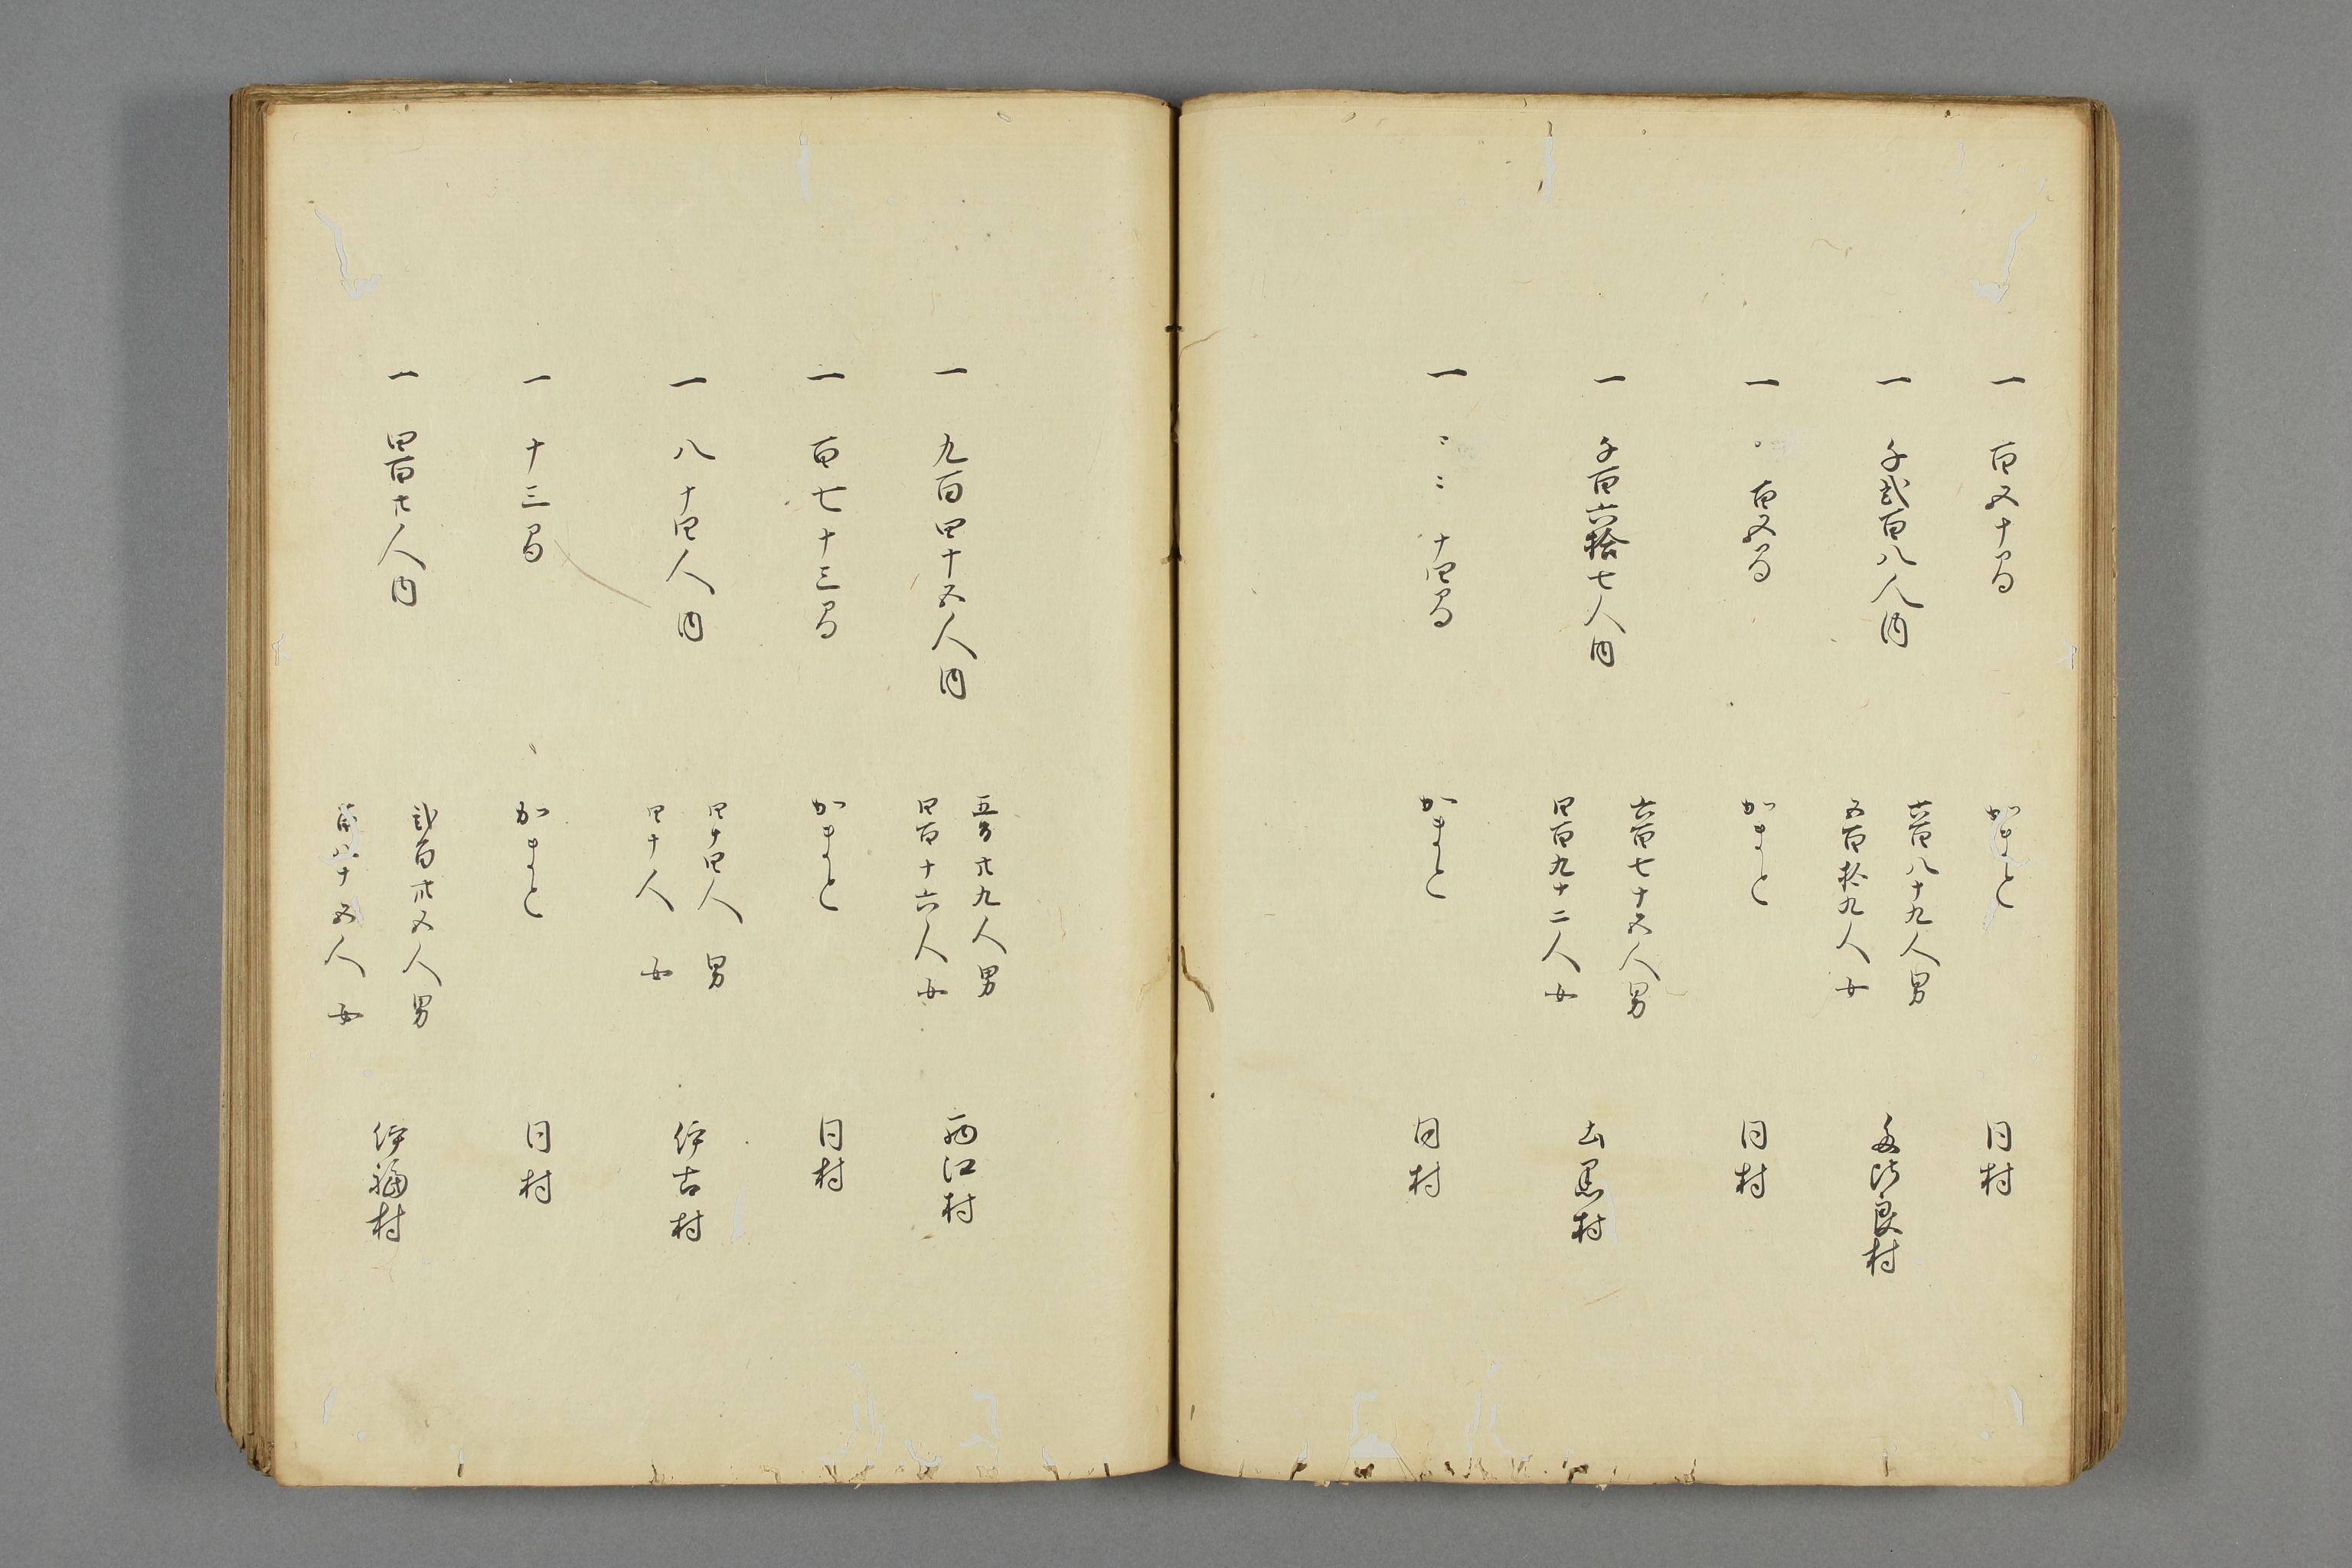 一 百五十間 かまと 同村
一 千弐百八人内 六百八十九人男 五百拾九人女 多比良村
一 百五間 かまと 同村
一 千百六拾七人内 六百七十五人男 四百九十二人女 土黒村
一 十四間 かまと 同村
一 九百四十五人内 五百廿九人男 四百十六人女 西江村
一 百七十三間 かまと 同村
一 八十四人内 四十四人男 四十人女 伊古村
一 十三間 かまと 同村
一 四百廿人内 弐百卅五人男 百八十五人女 伊福村